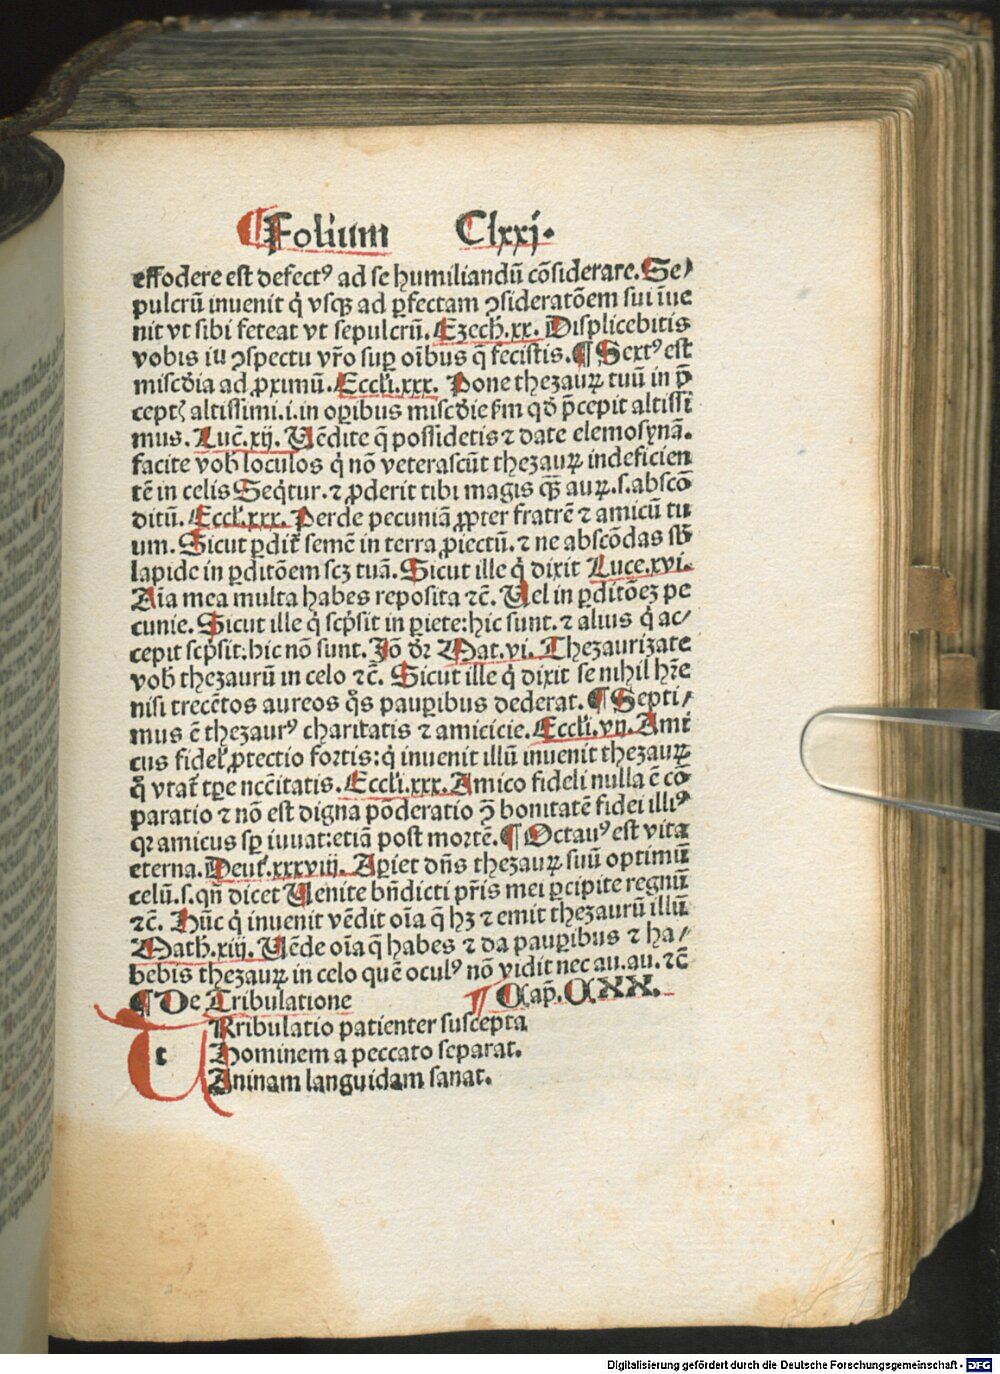 ¶Folium Clxxj.
effodere est defectꝰ ad se humiliandū cōsiderare. Se⸗
pulcrū inuenit q̇ vsqꝫ ad ꝑfectam ꝯsideratōem sui īue
nit vt sibi feteat vt sepulcrū. Ezech. xx. Displicebitis
vobis iu ꝯspectu vr̄o suꝑ oībus q̄ fecistis. ¶ Sextꝰ est
misc̄dia ad ꝓximū. Eccl̓i. xxx. Pone thezauꝝ tuū in p̄
ceptꝭ altissimi .i. in oꝑibus misc̄die ẜm qd̓ p̄cepit altissi
mus. Luc̄. xij. Uēdite q̄ possidetis ⁊ date elemosynā.
facite vob̓ loculos q̇ nō veterascūt thezauꝝ indeficien
tē in celis Seq̇tur. ⁊ ꝓderit tibi magis qꝫ̄ auꝝ .s. abscō
ditū. Eccl̓. xxx. Perde pecuniā ꝓpter fratrē ⁊ amicū tu
um. Sicut ꝑdit̄ semē in terra ꝓiectū. ⁊ ne abscōdas sb̓
lapide in ꝑditōem scꝫ tuā. Sicut ille q̇ dixit Luce. xvi.
Aīa mea multa habes reposita ⁊c̄. Uel in ꝑditōeꝫ pe
cunie. Sicut ille q̇ scp̄sit in ꝑiete: hic sunt. ⁊ alius q̇ ac⸗
cepit scp̄sit: hic nō sunt. Jō dr̄ Mat. vi. Thezaurizate
vob̓ thezaurū in celo ⁊c̄. Sicut ille q̇ dixit se nihil hr̄e
nisi trecētos aureos q̇s pauꝑibus dederat. ¶ Septi⸗
mus ē thezaurꝰ charitatis ⁊ amicicie. Eccl̓i. vij. Ami
cus fidel̓ ꝓtectio fortis: q̇ inuenit illū inuenit thezauꝝ
q̊ vtat̄ tꝑe nc̄citatis. Eccl̓i. xxx. Amico fideli nulla ē cō
paratio ⁊ nō est digna pōderatio ꝯ̄ bonitatē fidei illiꝰ
qꝛ amicus sꝑ iuuat: etiā post mortē. ¶ Octauꝰ est vita
eterna. Deut̄. xxxviij. Aꝑiet dn̄s thezauꝝ suū optimū
celū .s. qn̄ dicet Uenite bn̄dicti pr̄is mei ꝑcipite regnū
⁊c̄. Hūc q̇ inuenit vēdit oīa q̄ hꝫ ⁊ emit thezaurū illū
Math. xiij. Uēde oīa q̄ habes ⁊ da pauꝑibus ⁊ ha⸗
bebis thezauꝝ in celo quē oculꝰ nō vidit nec au. au. ⁊c̄
¶ De Tribulatione ¶ Cap̄. CXX.
TRribulatio patienter suscepta
Hominem a peccato separat.
Aninam languidam sanat.
Digitalisierung gefördert durch die Deutsche Forschungsgemeinschaft - DFG